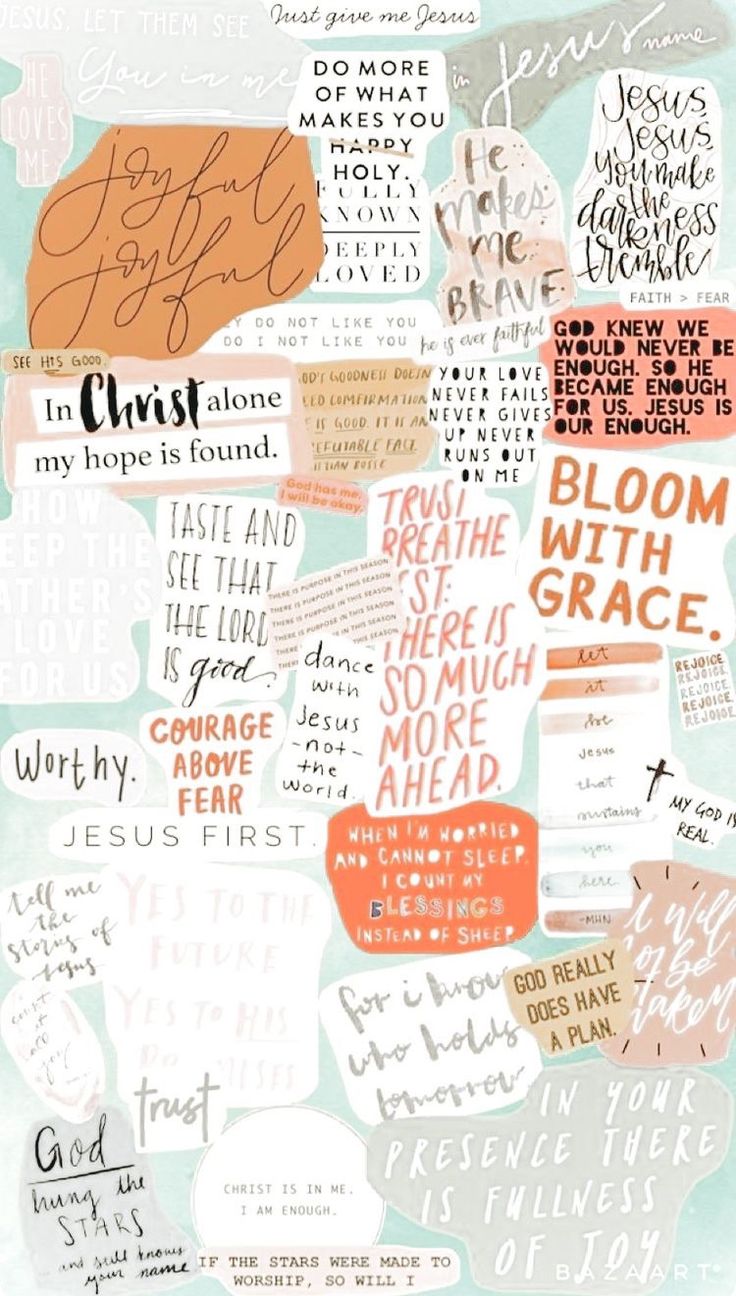 JESUS, LET THEM SEE
You in me
Just give me Jesus
in Jesus name
HE
LOVES
ME
DO MORE
OF WHAT
MAKES YOU
HAPPY
HOLY.
FULLY
KNOWN
DEEPLY
LOVED
joyful
joyful
He
makes
me
BRAVE.
Jesus,
Jesus,
you make
the
darkness
tremble
FAITH > FEAR
DO NOT LIKE YOU
DO I NOT LIKE YOU
he is ever faithful
GOD KNEW WE
WOULD NEVER BE
ENOUGH. SO HE
BECAME ENOUGH
FOR US. JESUS IS
OUR ENOUGH.
SEE HIS GOOD.
In Christ alone
my hope is found.
GOD'S GOODNESS
IS GOOD. IT IS AN
FACT.
YOUR LOVE
NEVER FAILS
NEVER GIVES
UP NEVER
RUNS OUT
ON ME
God has me.
I will be okay.
BLOOM
WITH
GRACE.
HOW
DEEP THE
FATHER'S
LOVE
FOR US
TASTE AND
SEE THAT
THE LORD
IS good.
THERE IS PURPOSE IN THIS SEASON
THERE IS PURPOSE IN THIS SEASON
THERE IS PURPOSE IN THIS SEASON
THERE IS PURPOSE IN THIS SEASON
THERE IS PURPOSE IN THIS SEASON
TRUST
BREATHE
THERE IS
SO MUCH
MORE
AHEAD.
dance
with
Jesus
-not-
the
world.
let
it
be
Jesus
that
sustains
you
here
-MHN
REJOICE
REJOICE.
REJOICE.
REJOICE.
REJOICE
Worthy.
COURAGE
ABOVE
FEAR
MY GOD IS
REAL.
JESUS FIRST.
WHEN I'M WORRIED
AND CANNOT SLEEP,
I COUNT MY
BLESSINGS
INSTEAD OF SHEEP
tell me
the
story of
Jesus
YES TO THE
FUTURE
YES TO HIS
PROMISES
count it
all
joy
I will
not be
shaken
for i know
who holds
tomorrow
GOD REALLY
DOES HAVE
A PLAN.
trust
God
hung the
STARS
and still knows
your name
CHRIST IS IN ME.
I AM ENOUGH.
IN YOUR
PRESENCE THERE
IS FULLNESS
OF JOY
IF THE STARS WERE MADE TO
WORSHIP, SO WILL I
BAZAART